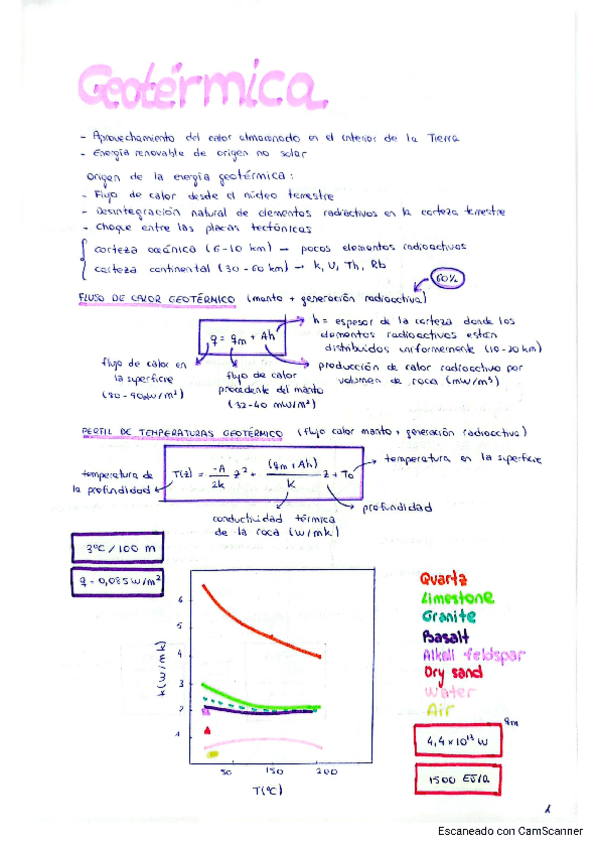 Geotérmica
- Aprovechamiento del calor almacenado en el interior de la Tierra
- Energía renovable de origen no solar
Origen de la energía geotérmica:
- Flujo de calor desde el núcleo terrestre
- Desintegración natural de elementos radiactivos en la corteza terrestre
- Choque entre las placas tectónicas
corteza oceánica (6-10 km) → pocos elementos radioactivos
corteza continental (30-60 km) → K, U, Th, Rb
60%
FLUJO DE CALOR GEOTÉRMICO (manto + generación radioactiva)
q = qm + Ah
h = espesor de la corteza donde los
elementos radioactivos están
distribuidos uniformemente (10-20 km)
flujo de calor en
la superficie
flujo de calor
procedente del manto
(32-40 mW/m²)
producción de calor radioactivo por
volumen de roca (mW/m³)
PERFIL DE TEMPERATURAS GEOTÉRMICO (flujo calor manto + generación radioactiva)
temperatura de
la profundidad
T(z) = -A/2k z² + (qm + Ah)/k z + To
temperatura en la superficie
profundidad
conductividad térmica
de la roca (W/mk)
3ºC/100 m
q = 0,085 W/m²
k (W/mk)
6
5
4
3
2
1
50
150
200
T(ºC)
Quartz
Limestone
Granite
Basalt
Alkali feldspar
Dry sand
Water
Air
4,4 x 10¹³ W
1500 EJ/a
1
Escaneado con CamScanner